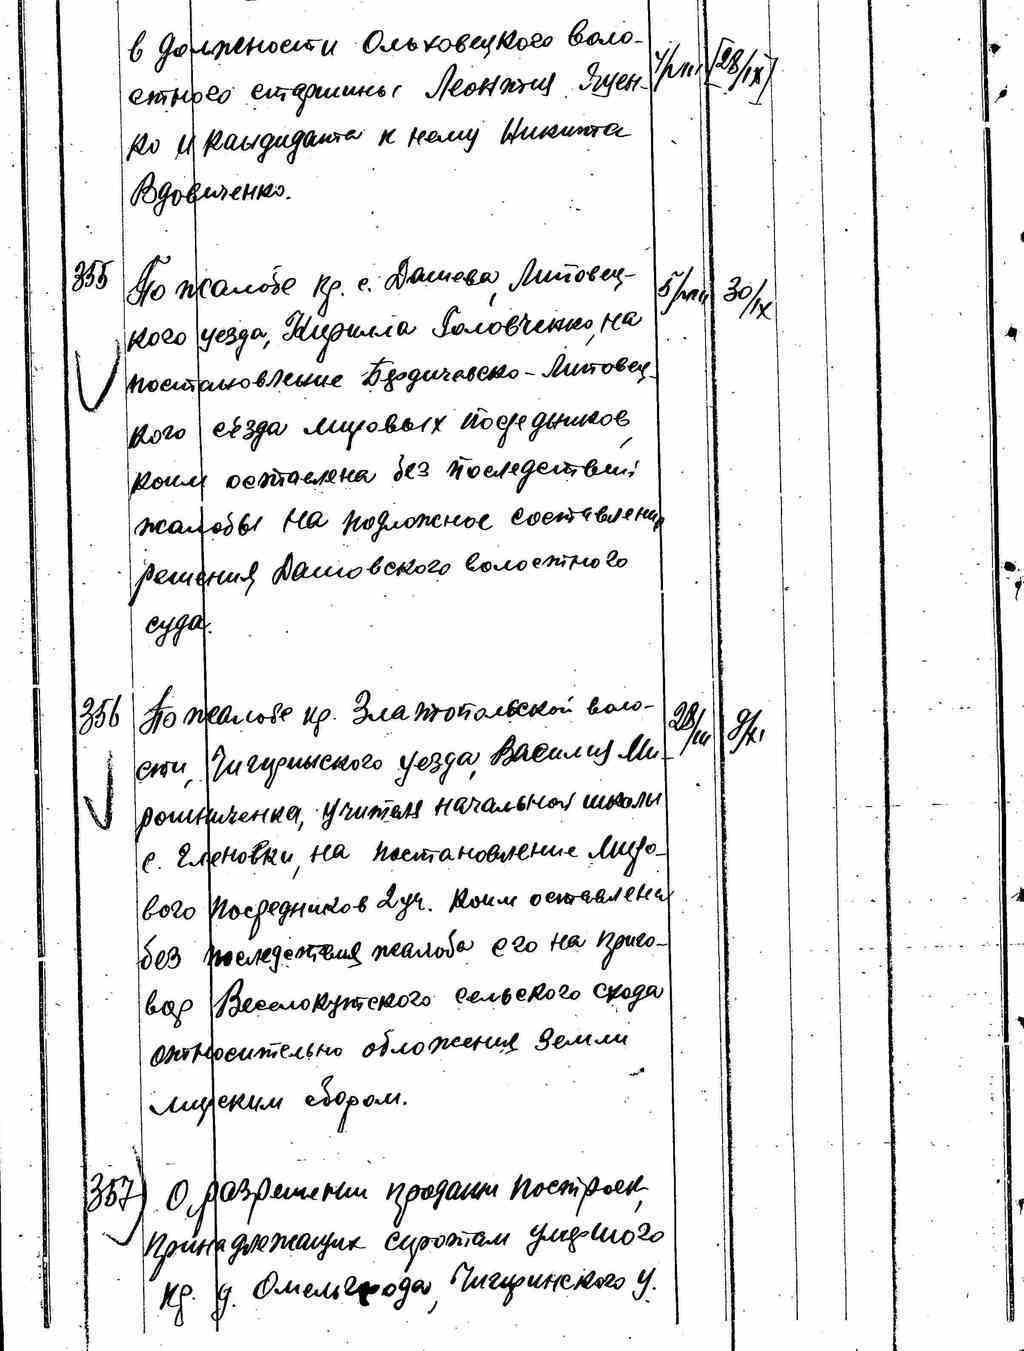 в должности Ольховецкого воло-
стного старшины Леонтия Яцен- [28/IX]
ко и кандидата к нему Никита
Вдовиченко.
355 По жалобе кр. с. Дашева, Липовец- 30/IX
кого уезда, Кирилла Головченко, на
постановление Бердичевско-Липовец-
кого съезда мировых посредников,
коим оставлена без последствий
жалобы на подложное составление
решения Дашовского волостного
суда.
356 По жалобе кр. Златопольской воло- 28/III 9/XI
сти, Чигиринского уезда, Василия Ми-
рошниченка, учителя начальной школы
с. Еленовки, на постановление Миро-
вого Посредников 2 уч. коим оставлена
без последствия жалоба его на приго-
вор Веселокутского сельского схода
относительно обложения земли
мирским сбором.
357) О разрешении продажи построек,
принадлежащих сиротам умершого
кр. д. Омельгорода, Чигиринского у.